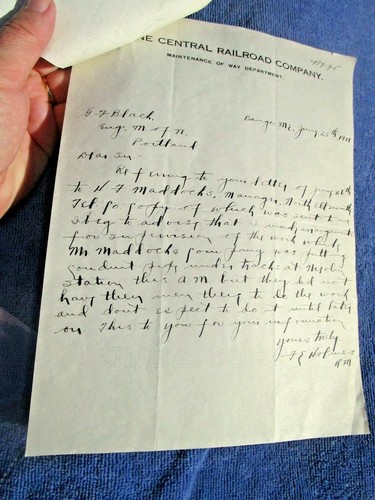 NE CENTRAL RAILROAD COMPANY.
MAINTENANCE OF WAY DEPARTMENT.
Bangor Me,
F Black.
Eng. M of W.
Portland
Dear Sir -
Refering to your letter of
to H F Maddocks, Manager, North
Tel Co Copy of which was sent to me
I beg to advise that I made
for supervision of the work which
Mr Maddocks Company was putting
conduit pipe under track at
Station this A M but they did not
have their men there to do the work
and dont expect to do it until later
on. This to you for your information
yours truly
F E Holmes
R M